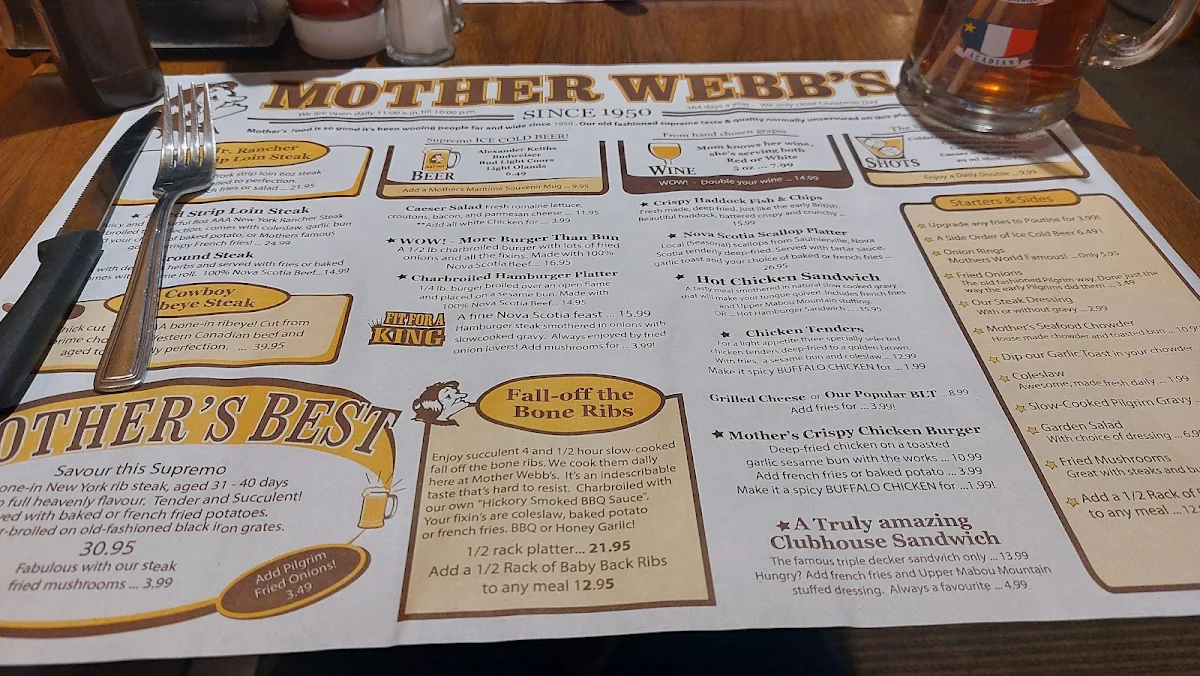 MOTHER WEBB'S
We are open daily 11:00 a.m. till 10:00 p.m.
SINCE 1950
364 days a year ... We only close Christmas Day
Mother's food is so good it's been wooing people far and wide since 1950. Our old fashioned supreme taste & quality normally unsavoured on this
ACADIAN
Jr. Rancher
Loin Steak
York strip loin 6oz steak
to perfection.
fries or salad ... 21.95
Strip Loin Steak
8oz AAA New York Rancher Steak
perfection, comes with coleslaw, garlic bun
your choice of baked potato, or Mothers famous
crispy French fries! ... 24.99
Ground Steak
herbs and served with fries or baked
roll. 100% Nova Scotia Beef...14.99
Cowboy
Ribeye Steak
thick cut AAA bone-in ribeye! Cut from
prime Western Canadian beef and
aged to perfection. ... 39.95
MOTHER'S BEST
Savour this Supremo
bone-in New York rib steak, aged 31 - 40 days
full heavenly flavour. Tender and Succulent!
served with baked or french fried potatoes.
broiled on old-fashioned black iron grates.
30.95
Fabulous with our steak
fried mushrooms ... 3.99
Add Pilgrim
Fried Onions!
3.49
Supremo ICE COLD BEER!
BEER
Alexander Keiths
Budweiser
Bud Light Coors
Light Olands
6.49
Add a Mother's Maritime Souvenir Mug ... 9.95
Caesar Salad Fresh romaine lettuce,
croutons, bacon, and parmesan cheese ... 11.95
**Add all white Chicken for ... 3.99
WOW! - More Burger Than Bun
A 1/2 lb charbroiled burger with lots of fried
onions and all the fixins. Made with 100%
Nova Scotia Beef ... 16.95
Charbroiled Hamburger Platter
1/4 lb. burger broiled over an open flame
and placed on a sesame bun. Made with
100% Nova Scotia Beef .. 14.95
FIT FOR A
KING
A fine Nova Scotia feast ... 15.99
Hamburger steak smothered in onions with
slowcooked gravy. Always enjoyed by fried
onion lovers! Add mushrooms for ... 3.99!
Fall-off the
Bone Ribs
Enjoy succulent 4 and 1/2 hour slow-cooked
fall off the bone ribs. We cook them daily
here at Mother Webb's. It's an indescribable
taste that's hard to resist. Charbroiled with
our own "Hickory Smoked BBQ Sauce".
Your fixin's are coleslaw, baked potato
or french fries. BBQ or Honey Garlic!
1/2 rack platter... 21.95
Add a 1/2 Rack of Baby Back Ribs
to any meal 12.95
From hand chosen grapes
WINE
Mom knows her wine,
she's serving both
Red or White
5 oz ... 7.99
WOW! - Double your wine ... 14.99
Crispy Haddock Fish & Chips
Fresh made, deep fried, just like the early British.
Beautiful haddock, battered crispy and crunchy ...
15.99
Nova Scotia Scallop Platter
Local (Seasonal) scallops from Saulnierville, Nova
Scotia tenderly deep-fried. Served with tartar sauce,
garlic toast and your choice of baked or french fries ---
26.95
Hot Chicken Sandwich
A tasty meal smothered in natural slow cooked gravy
that will make your tongue quiver! Includes french fries
and Upper Mabou Mountain stuffing.
OR ... Hot Hamburger Sandwich ... 15.95
Chicken Tenders
For a light appetite three specially selected
chicken tenders deep-fried to a golden brown.
With fries, a sesame bun and coleslaw ... 12.99
Make it spicy BUFFALO CHICKEN for ... 1.99
Grilled Cheese or Our Popular BLT ... 8.99
Add fries for ... 3.99!
Mother's Crispy Chicken Burger
Deep-fried chicken on a toasted
garlic sesame bun with the works ... 10.99
Add french fries or baked potato ... 3.99
Make it a spicy BUFFALO CHICKEN for ...1.99!
A Truly amazing
Clubhouse Sandwich
The famous triple decker sandwich only ... 13.99
Hungry? Add french fries and Upper Mabou Mountain
stuffed dressing. Always a favourite ... 4.99
The
SHOTS
Enjoy a Daily Double ... 9.99
Starters & Sides
Upgrade any fries to Poutine for 3.99!
A Side Order of Ice Cold Beer 6.49!
Onion Rings
Mothers World Famous! ... Only 5.95
Fried Onions
The old fashioned Pilgrim way. Done just the
way the early Pilgrims did them ... 3.49
Our Steak Dressing
With or without gravy ... 2.99
Mother's Seafood Chowder
House made chowder and toasted bun ...
Dip our Garlic Toast in your chowder
Coleslaw
Awesome, made fresh daily ... 1.99
Slow-Cooked Pilgrim Gravy
Garden Salad
With choice of dressing ...
Fried Mushrooms
Great with steaks and
Add a 1/2 Rack of
to any meal ...